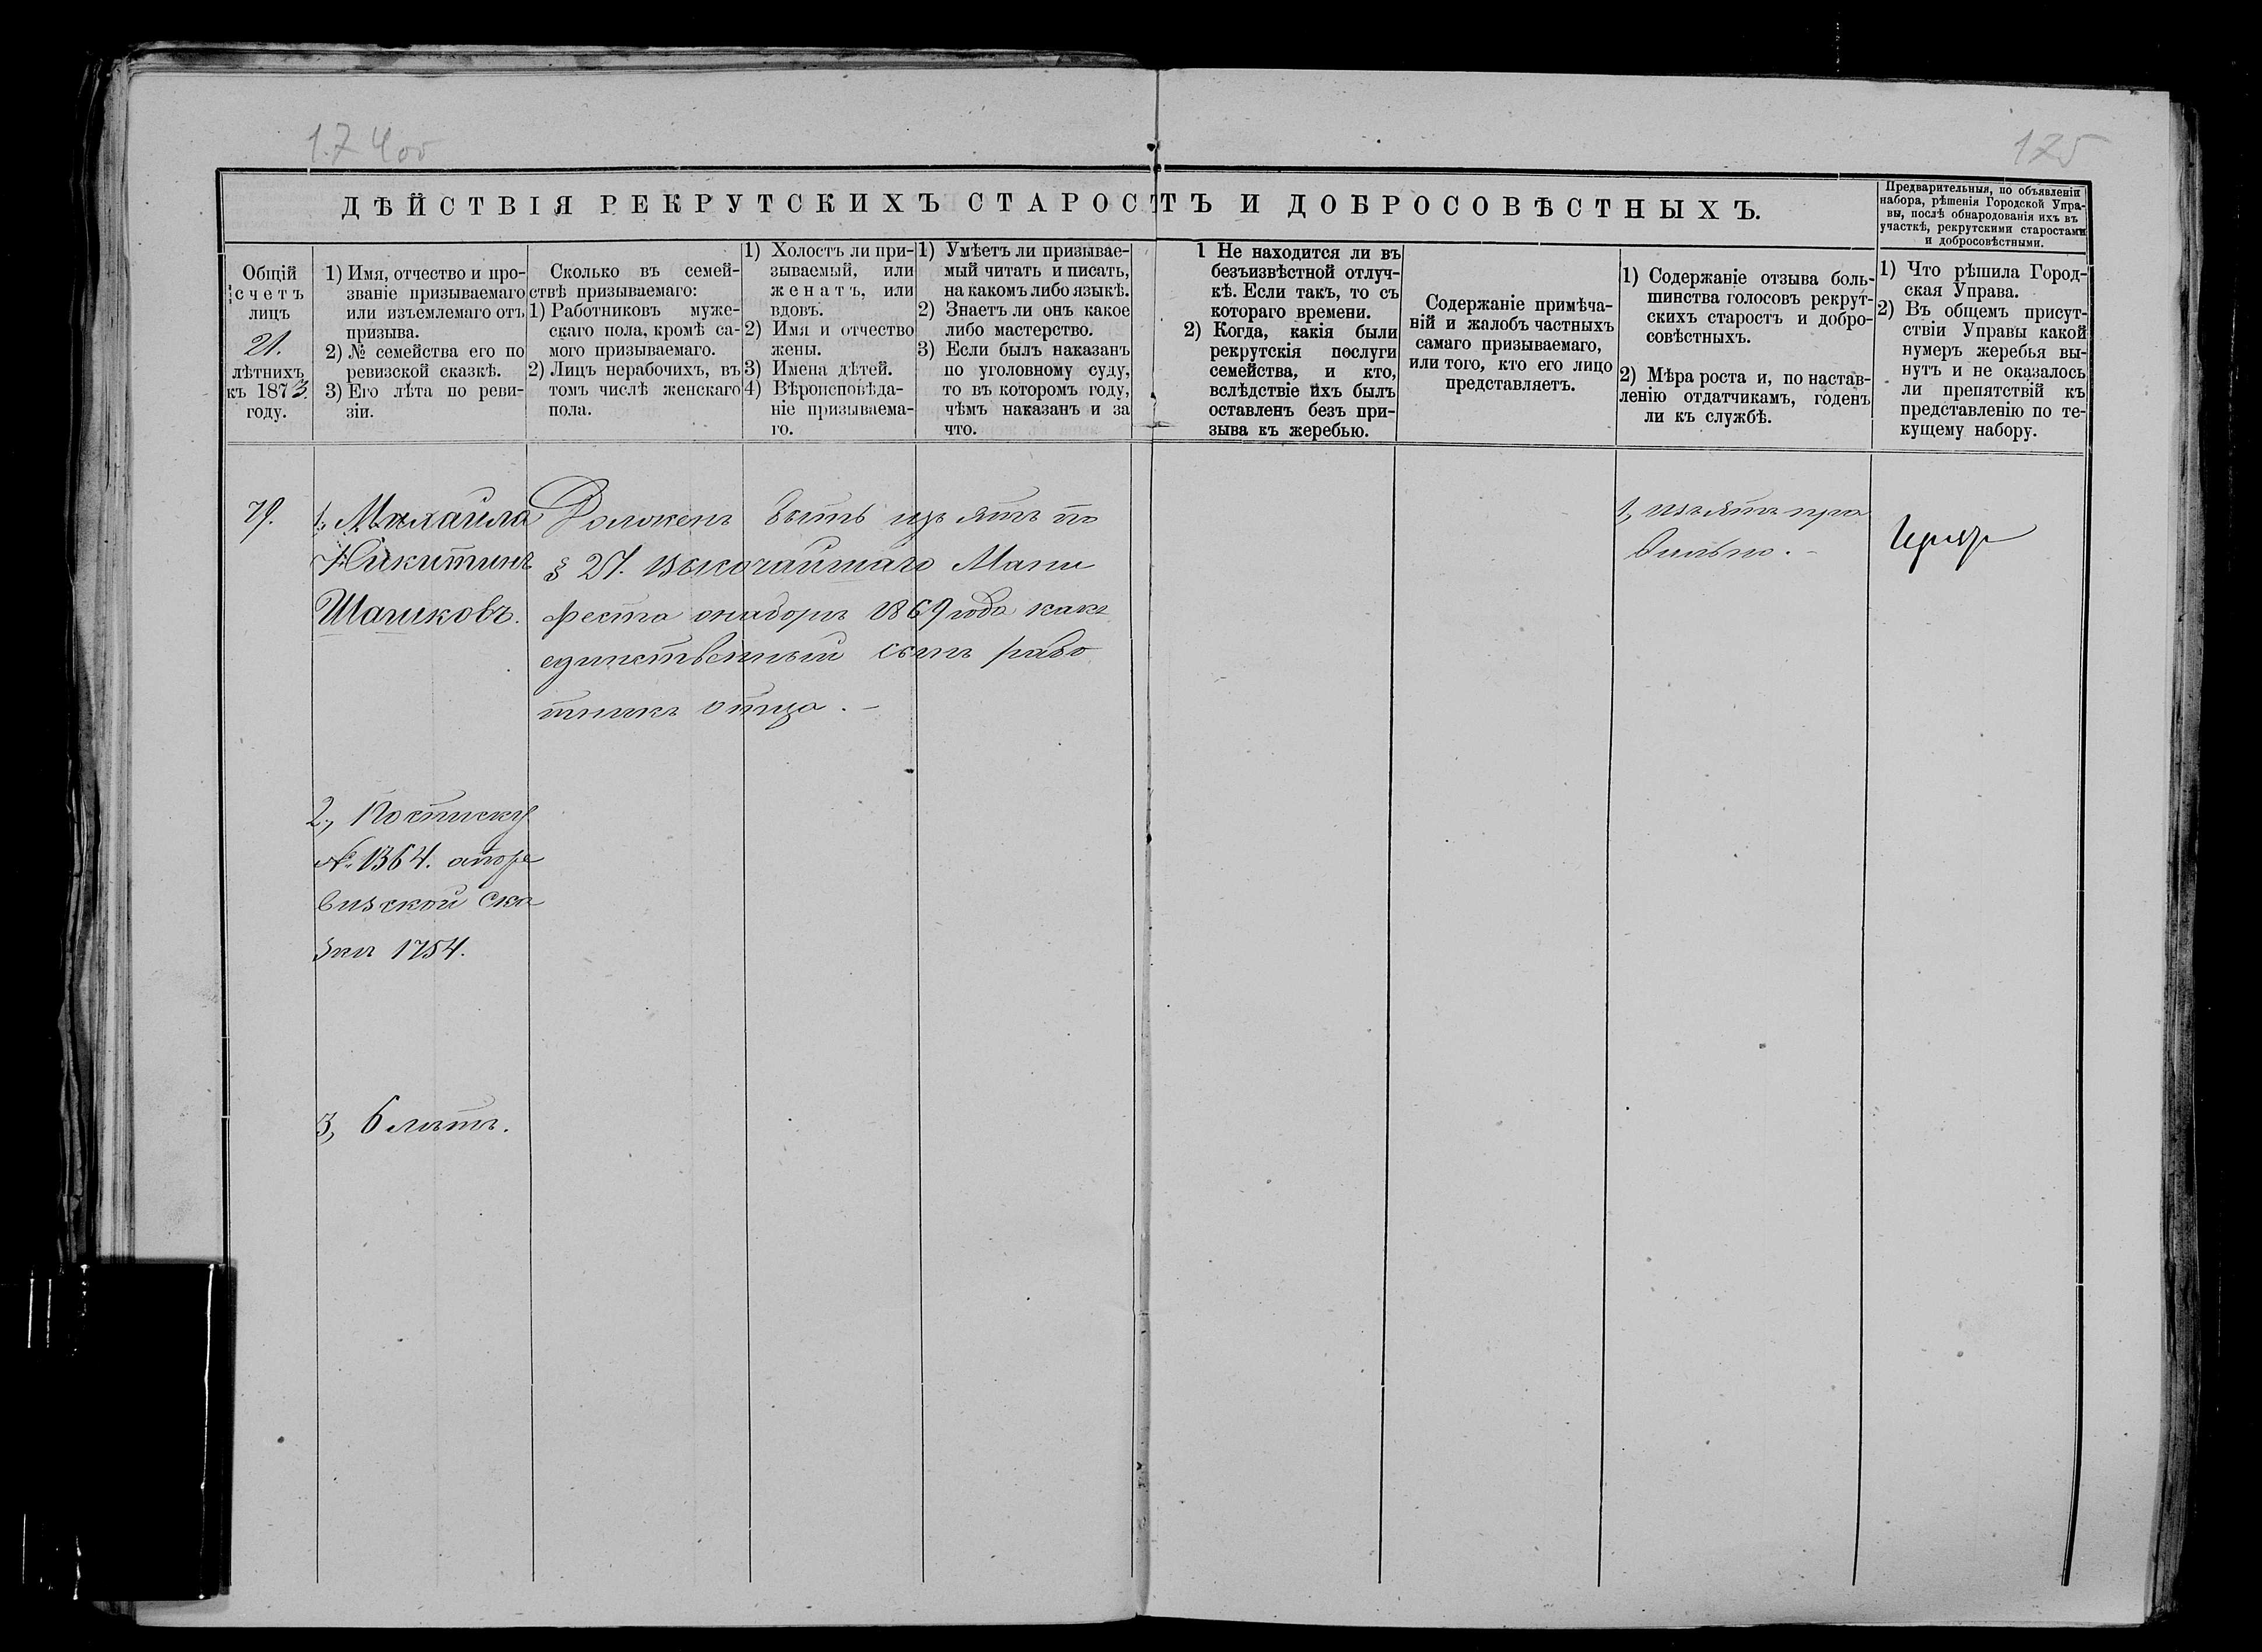 174 об
175
ДѢЙСТВІЯ РЕКРУТСКИХЪ СТАРОСТЪ И ДОБРОСОВѢСТНЫХЪ.
Предварительныя, по объявленіи
набора, рѣшенія Городской Упра-
вы, послѣ обнародованія ихъ въ
участкѣ, рекрутскими старостами
и добросовѣстными.
Общій
счетъ
лицъ
21.
лѣтнихъ
къ 1873.
году.
1) Имя, отчество и про-
званіе призываемаго
или изъемлемаго отъ
призыва.
2) № семейства его по
ревизской сказкѣ.
3) Его лѣта по реви-
зіи.
Сколько въ семей-
ствѣ призываемаго:
1) Работниковъ муже-
скаго пола, кромѣ са-
мого призываемаго.
2) Лицъ нерабочихъ, въ
томъ числѣ женскаго
пола.
1) Холостъ ли при-
зываемый, или
женатъ, или
вдовъ.
2) Имя и отчество
жены.
3) Имена дѣтей.
4) Вѣроисповѣда-
ніе призываема-
го.
1) Умѣетъ ли призывае-
мый читать и писать,
на какомъ либо языкѣ.
2) Знаетъ ли онъ какое
либо мастерство.
3) Если былъ наказанъ
по уголовному суду,
то въ которомъ году,
чѣмъ наказанъ и за
что.
1 Не находится ли въ
безъизвѣстной отлуч-
кѣ. Если такъ, то съ
котораго времени.
2) Когда, какія были
рекрутскія послуги
семейства, и кто,
вслѣдствіе ихъ былъ
оставленъ безъ при-
зыва къ жеребью.
Содержаніе примѣча-
ній и жалобъ частныхъ
самаго призываемаго,
или того, кто его лицо
представляетъ.
1) Содержаніе отзыва боль-
шинства голосовъ рекрут-
скихъ старостъ и добро-
совѣстныхъ.
2) Мѣра роста и, по настав-
ленію отдатчикамъ, годенъ
ли къ службѣ.
1) Что рѣшила Город-
ская Управа.
2) Въ общемъ присут-
ствіи Управы какой
нумеръ жеребья вы-
нутъ и не оказалось
ли препятствій къ
представленію по те-
кущему набору.
79.
1, Михаила
Никитинъ
Шашковъ.
Долженъ быть изъятъ по
§ 27. высочайшаго Мани
феста онаборѣ 1869 года какъ
единственный сынъ рабо
тникъ отца. –
1, изъятъ пра
вильно. –
2, Посписку
№ 1364. апоре
визской ска
зкѣ 1754.
3, 6 лѣтъ.